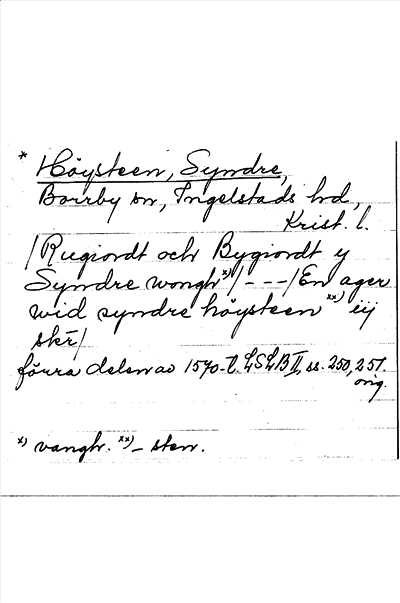 * Höysteen, Syndre,
Borrby sn, Ingelstads hd,
Krist. l.
/Rugiordt och Bygiordt y
Syndre wongh x)/ - - - /En ager
wid syndre höysteen xx) iij
skr/
förra delen av 1570-t. LSLB II, ss. 250, 251.
orig.
x) vangh. xx) - sten.